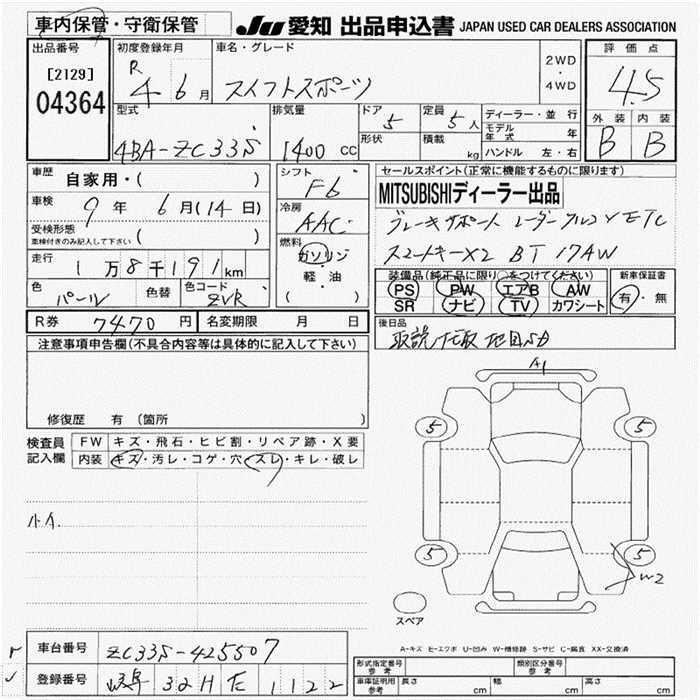 車内保管・守衛保管
JU 愛知 出品申込書 JAPAN USED CAR DEALERS ASSOCIATION
出品番号 [2129] 04364
初度登録年月 R 4年 6月
車名・グレード スイフトスポーツ 2WD・4WD
評価点 4.5
外装 B 内装 B
型式 4BA-ZC33S
排気量 1400 CC
ドア 5 形状
定員 5人 積載 kg
ディーラー・並行
モデル年式 年
ハンドル 左・右
車歴 自家用・( )
車検 9年 6月(14日)
受検形態 車検付きのみ記入して下さい ( )
走行 1万8千191km
色 パール 色替 色コード ZVR
シフト F6
冷房 AAC
燃料 ガソリン・軽・油 ( )
セールスポイント(正常に機能するものに限ります)
MITSUBISHIディーラー出品
ブレーキサポート レーダークルコン ETC
スマートキーX2 BT 17AW
装備品(純正品に限り○をつけてください)
PS PW エアB AW
SR ナビ TV カワシート
新車保証書 有・無
R券 7470円 名変期限 月 日
後日品
取説 記取 地図SD
注意事項申告欄(不具合内容等は具体的に記入して下さい)
修復歴 有 (箇所 )
検査員記入欄
FW キズ・飛石・ヒビ割・リペア跡・X要
内装 キズ・汚レ・コゲ・穴・スレ・キレ・破レ
小A.
A1
5 5
5 5
W2
スペア
A-キズ E-エクボ U-凹み W-補修跡 S-サビ C-腐食 XX-交換済
車台番号 ZC33S-425507
登録番号 岐阜 32H E 1122
形式指定番号 参考
類別区分番号 参考
車庫証明用 参考 長さ cm 幅 cm 高さ cm